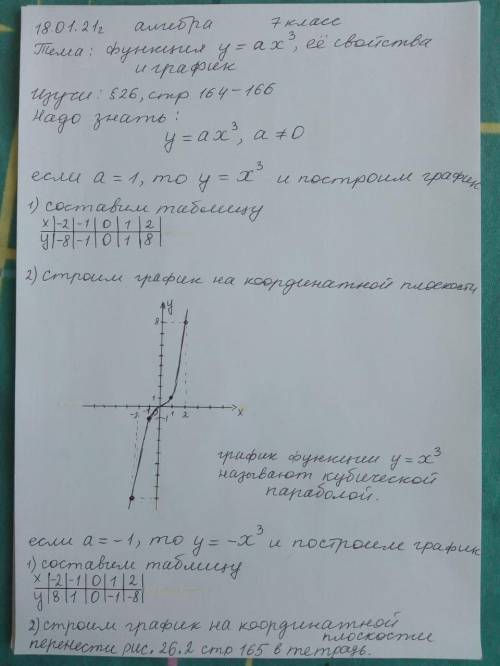 18.01.21г алгебра 7 класс
Тема: функция y = ax³, её свойства
и график
Изучи: §26, стр 164-166
Надо знать:
y = ax³, a ≠ 0
если a = 1, то y = x³ и построим график
1) составим таблицу
x | -2 | -1 | 0 | 1 | 2 |
y | -8 | -1 | 0 | 1 | 8 |
2) строим график на координатной плоскости
y
8
1
-2 -1 0 1 2 x
-1
график функции y = x³
называют кубической
параболой.
если a = -1, то y = -x³ и построим график
1) составим таблицу
x | -2 | -1 | 0 | 1 | 2 |
y | 8 | 1 | 0 | -1 | -8 |
2) строим график на координатной
плоскости
перенести рис. 26.2 стр 165 в тетрадь.